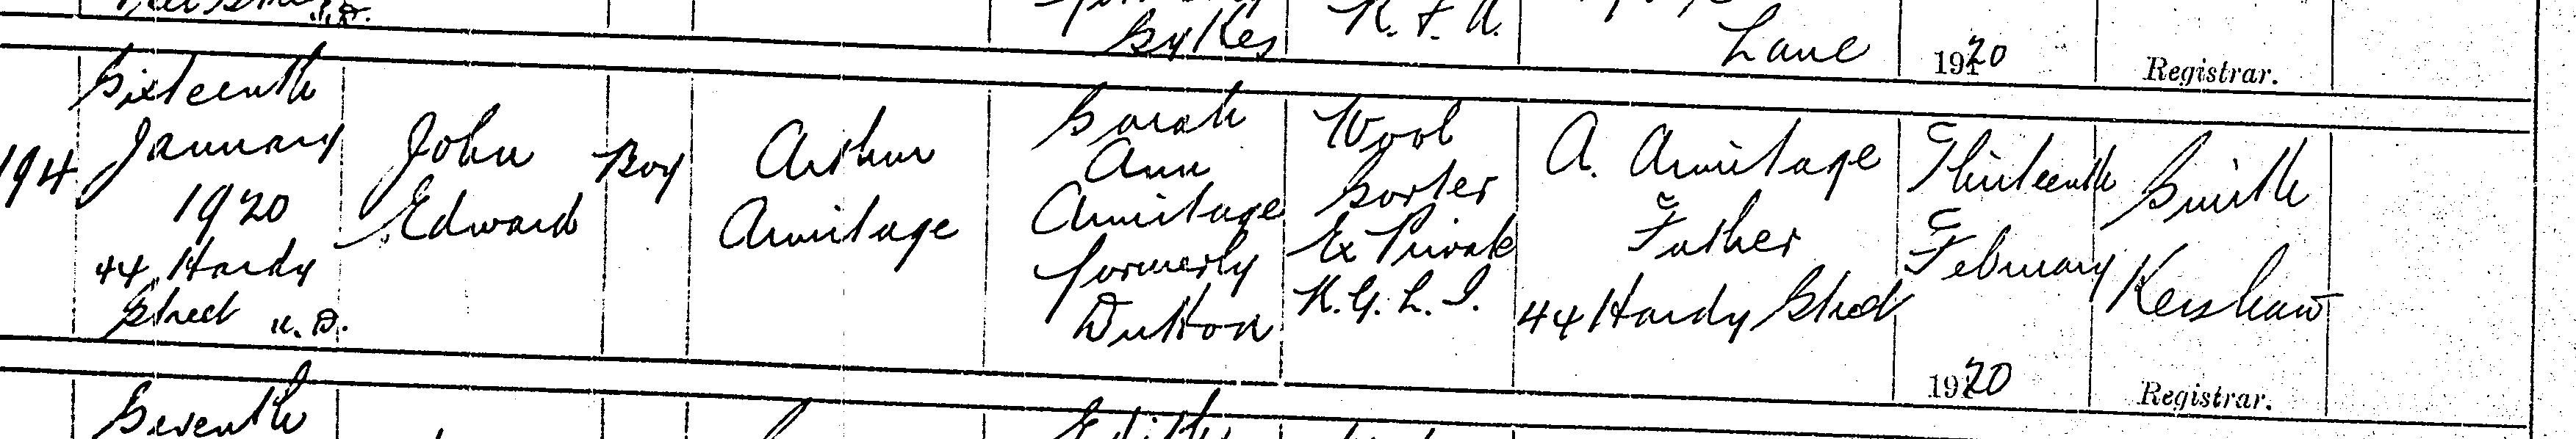 Sykes
R. F. A.
Lane
1920
Registrar.
194
Sixteenth
January
1920
44 Hardy
Street U.D.
John
Edward
Boy
Arthur
Armitage
Sarah
Ann
Armitage
formerly
Dutton
Wool
Sorter
Ex Private
K. G. L. I.
A. Armitage
Father
44 Hardy Street
Thirteenth
February
1920
Smith
Kershaw
Registrar.
Seventh
Edith